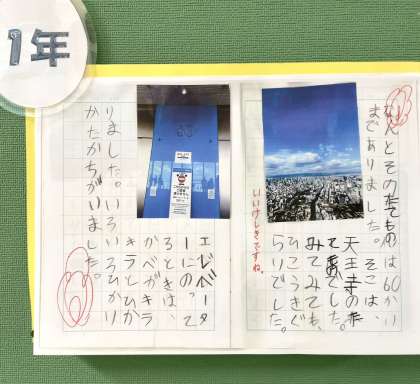 1年
なんとそのたてものは60かい
までありました。そこは、
天王寺の
でした。
みてみても、
ひこうきぐ
らいでした。
いいけしきですね。
エレベータ
ーにのって
るときは、
かべがキラ
キラとひか
りました。いろいろひかり
かたかちがいました。